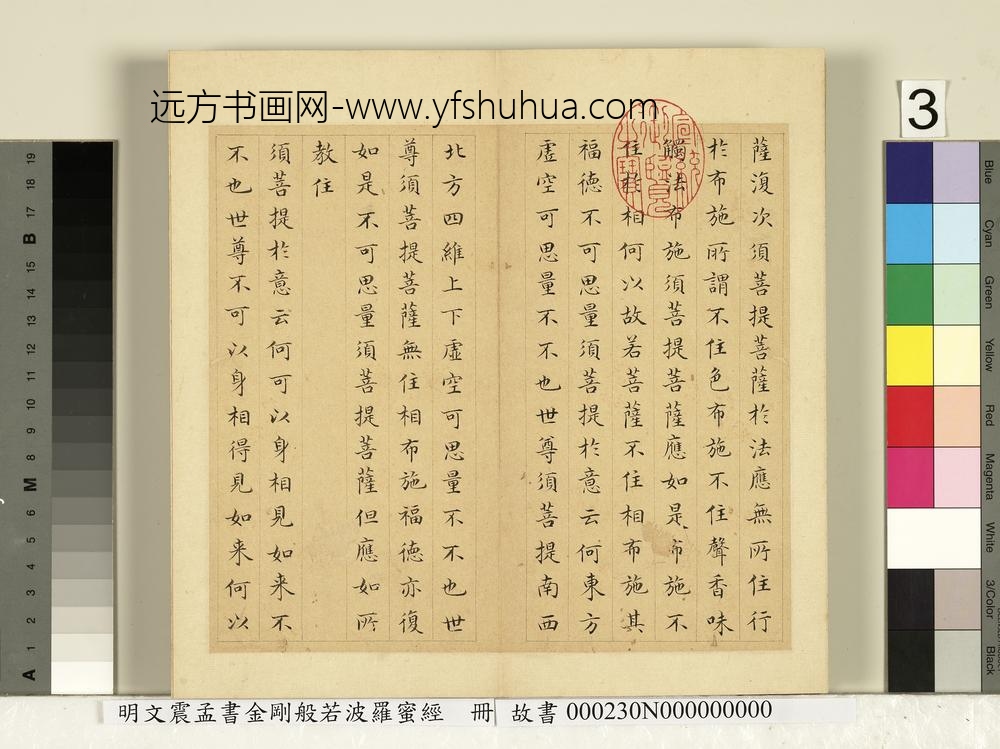 远方书画网-www.yfshuhua.com
3
薩復次須菩提菩薩於法應無所住行
於布施所謂不住色布施不住聲香味
觸法布施須菩提菩薩應如是布施不
住於相何以故若菩薩不住相布施其
福德不可思量須菩提於意云何東方
虛空可思量不不也世尊須菩提南西
北方四維上下虛空可思量不不也世
尊須菩提菩薩無住相布施福德亦復
如是不可思量須菩提菩薩但應如所
教住
須菩提於意云何可以身相見如来不
不也世尊不可以身相得見如来何以
明文震孟書金剛般若波羅蜜經 冊 故書 000230N000000000
A 1 2 3 4 5 6 M 8 9 10 11 12 13 14 15 B 17 18 19
Blue
Cyan
Green
Yellow
Red
Magenta
White
3/Color
Black